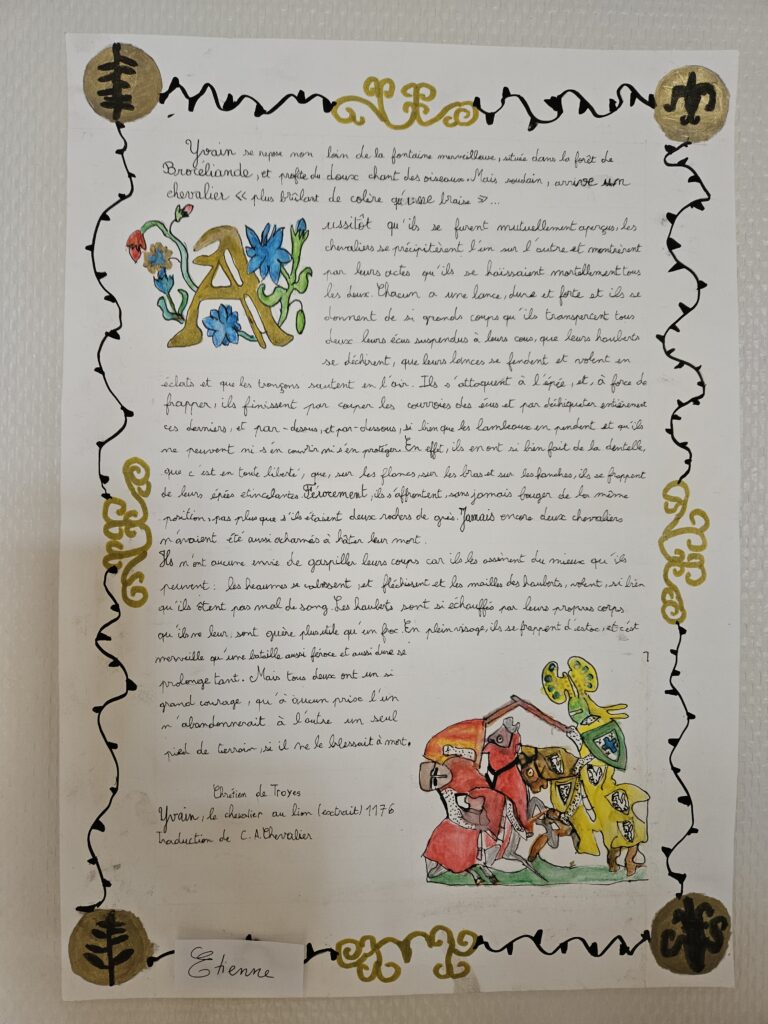 Yvain se repose non loin de la fontaine merveilleuse, située dans la forêt de
Brocéliande, et profite du doux chant des oiseaux. Mais soudain, arrive un
chevalier « plus brûlant de colère qu'une braise »...
Aussitôt qu'ils se furent mutuellement aperçus, les
chevaliers se précipitèrent l'un sur l'autre et montrèrent
par leurs actes qu'ils se haïssaient mortellement tous
les deux. Chacun a une lance, dure et forte et ils se
donnent de si grands coups qu'ils transpercent tous
deux leurs écus suspendus à leurs cous, que leurs hauberts
se déchirent, que leurs lances se fendent et volent en
éclats et que les tronçons sautent en l'air. Ils s'attaquent à l'épée, et, à force de
frapper, ils finissent par couper les courroies des écus et par déchiqueter entièrement
ces derniers, et par-dessus, et par-dessous, si bien que les lambeaux en pendent et qu'ils
ne peuvent ni s'en couvrir ni s'en protéger. En effet, ils en ont si bien fait de la dentelle,
que c'est en toute liberté, que, sur les flancs, sur les bras et sur les hanches, ils se frappent
de leurs épées étincelantes. Férocement, ils s'affrontent, sans jamais bouger de la même
position, pas plus que s'ils étaient deux rochers de grès. Jamais encore deux chevaliers
n'avaient été aussi acharnés à hâter leur mort.
Ils n'ont aucune envie de gaspiller leurs coups car ils les assènent du mieux qu'ils
peuvent: les heaumes se cabossent, et fléchissent et les mailles des hauberts, volent, si bien
qu'ils ôtent pas mal de sang. Les hauberts sont si échauffés par leurs propres corps
qu'ils ne leur sont guère plus utile qu'un froc. En plein visage, ils se frappent d'estoc, et c'est
merveille qu'une bataille aussi féroce et aussi dure se
prolonge tant. Mais tous deux ont un si
grand courage, qu'à aucun prix l'un
n'abandonnerait à l'autre un seul
pied de terrain, si il ne le blessait à mort.
Chrétien de Troyes
Yvain, le chevalier au lion (extrait) 1176
Traduction de C.A. Chevalier
Etienne